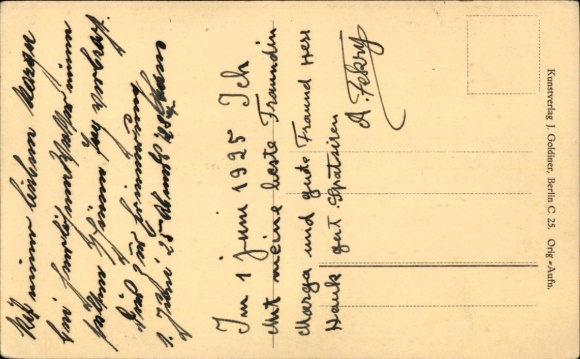 Mit meiner lieben Marga
bei herrlichem Wetter einen
schönen Tag verlebt.
Dies zur Erinnerung
1. Juni 25 Abends
Im 1 Juni 1925 Ich
Mit meine beste Fraundin
Marga und gute Fraund Herr
Hauk gut Spatziren
A. Fekry
Kunstverlag J. Goldiner, Berlin C. 25. Orig.-Aufn.